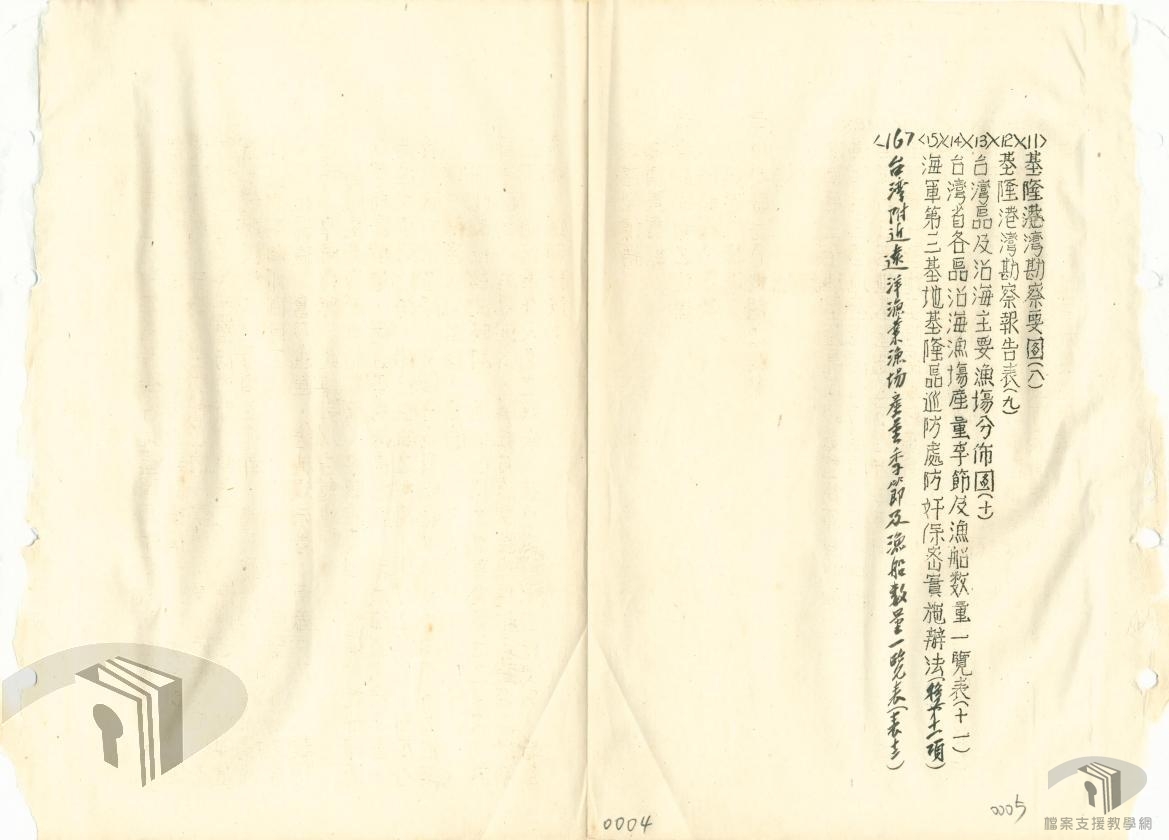 <11>基隆港灣勘察要圖(八)
<12>基隆港灣勘察報告表(九)
<13>台灣區及沿海主要漁場分佈圖(十)
<14>台灣省各區沿海漁場產量季節及漁船数量一覽表(十一)
<15>海軍第三基地基隆區巡防處防奸保密實施辦法(十二項)
<16>台灣附近遠洋漁業漁場產量季節及漁船数量一覽表(表十三)
0004
0005
檔案支援教學網